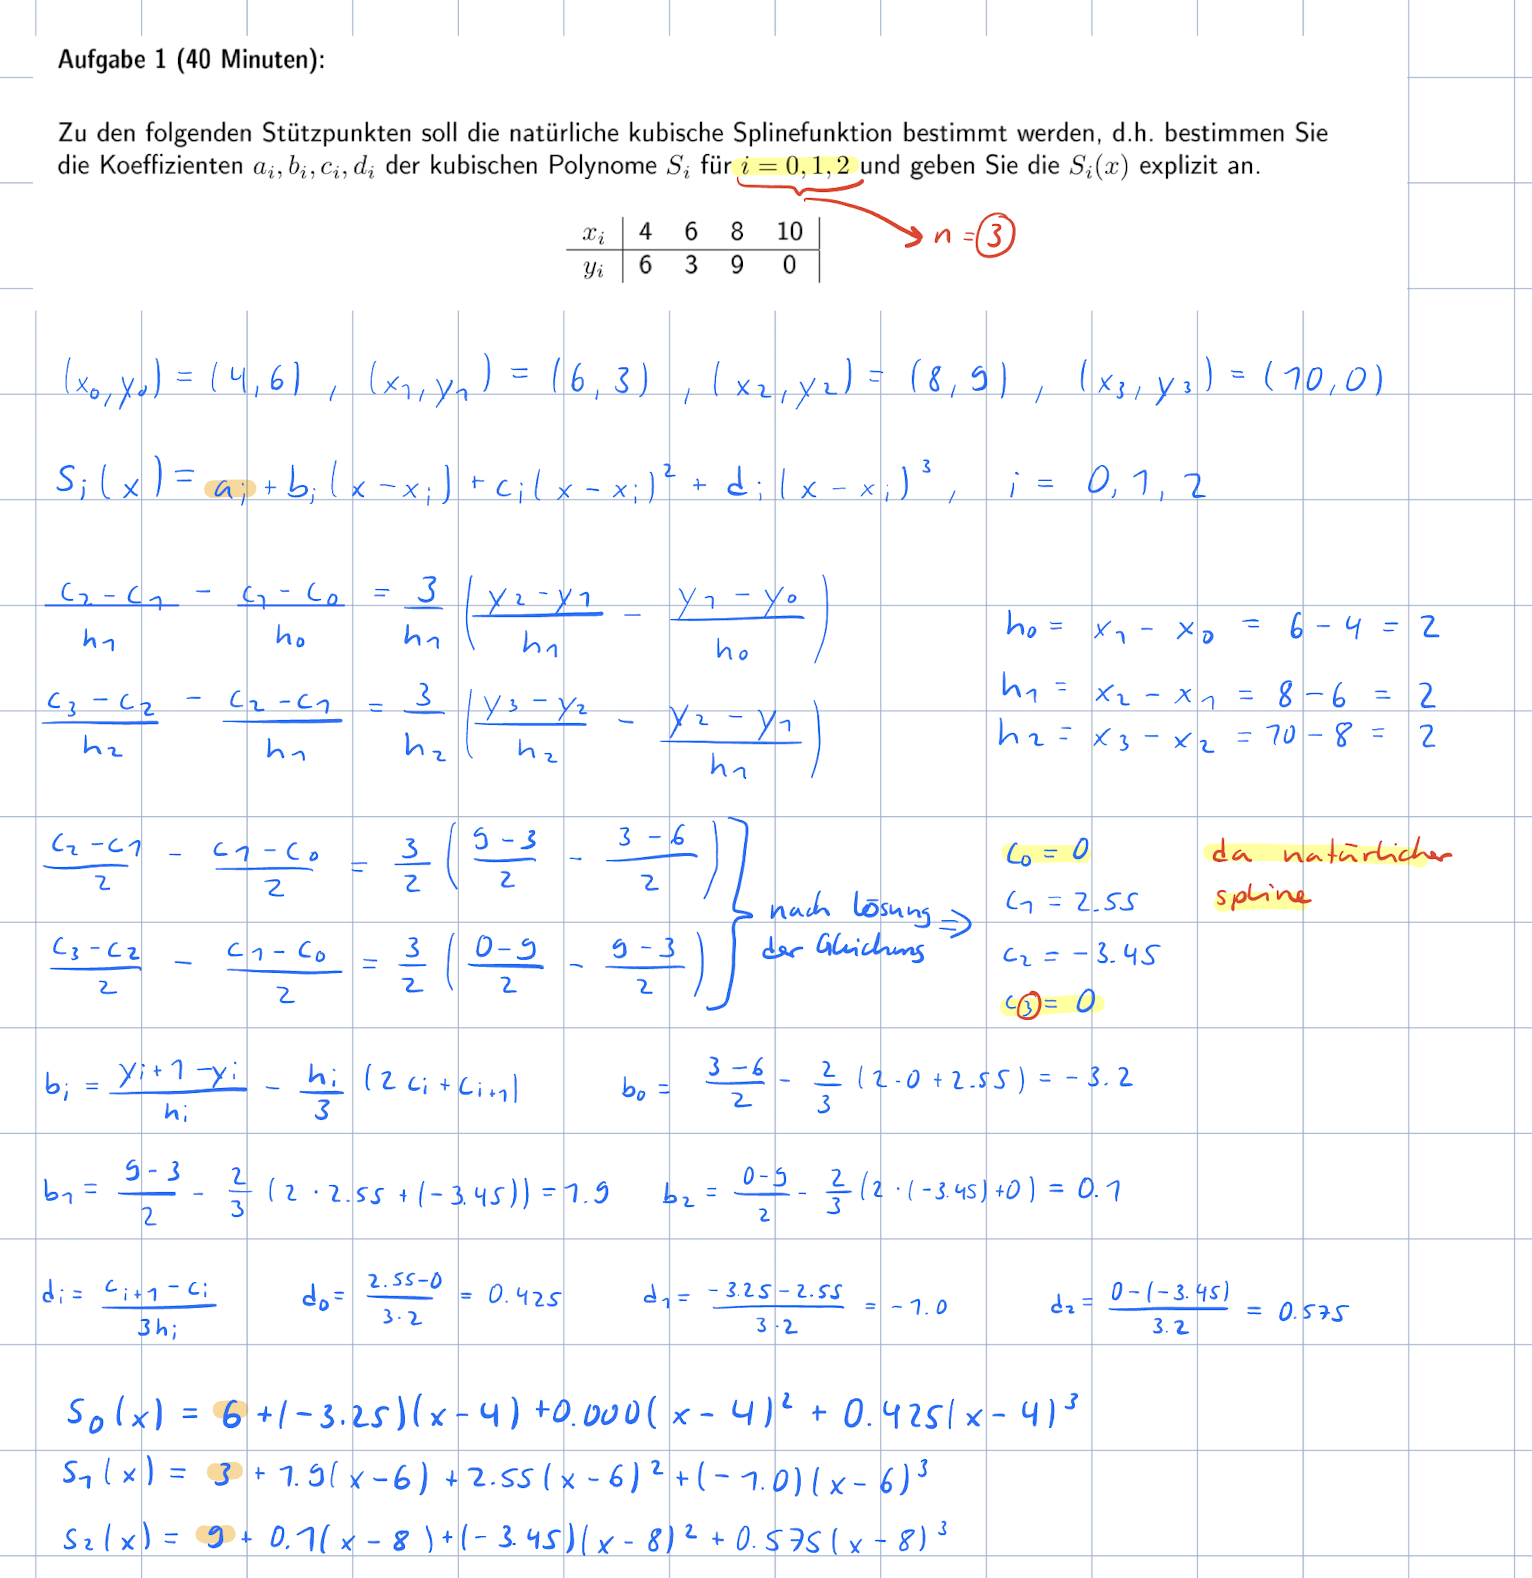 Aufgabe 1 (40 Minuten):
Zu den folgenden Stützpunkten soll die natürliche kubische Splinefunktion bestimmt werden, d.h. bestimmen Sie
die Koeffizienten a_i, b_i, c_i, d_i der kubischen Polynome S_i für i = 0, 1, 2 und geben Sie die S_i(x) explizit an.
x_i | 4 6 8 10 |
y_i | 6 3 9 0 |
n = 3
(x_0, y_0) = (4,6) , (x_1, y_1) = (6,3) , (x_2, y_2) = (8,9) , (x_3, y_3) = (10,0)
S_i(x) = a_i + b_i(x - x_i) + c_i(x - x_i)^2 + d_i(x - x_i)^3 , i = 0, 1, 2
(c_2 - c_1)/h_1 - (c_1 - c_0)/h_0 = 3/h_1 ((y_2 - y_1)/h_1 - (y_1 - y_0)/h_0)
h_0 = x_1 - x_0 = 6 - 4 = 2
(c_3 - c_2)/h_2 - (c_2 - c_1)/h_1 = 3/h_2 ((y_3 - y_2)/h_2 - (y_2 - y_1)/h_1)
h_1 = x_2 - x_1 = 8 - 6 = 2
h_2 = x_3 - x_2 = 10 - 8 = 2
(c_2 - c_1)/2 - (c_1 - c_0)/2 = 3/2 ((9 - 3)/2 - (3 - 6)/2)
(c_3 - c_2)/2 - (c_1 - c_0)/2 = 3/2 ((0 - 9)/2 - (9 - 3)/2)
nach Lösung ⇒
der Gleichung
c_0 = 0 da natürlicher
c_1 = 2.55 spline
c_2 = -3.45
c_3 = 0
b_i = (y_i+1 - y_i)/h_i - h_i/3 (2c_i + c_i+1) b_0 = (3-6)/2 - 2/3 (2·0 + 2.55) = -3.2
b_1 = (9-3)/2 - 2/3 (2 · 2.55 + (-3.45)) = 1.9 b_2 = (0-9)/2 - 2/3 (2 · (-3.45) + 0) = 0.1
d_i = (c_i+1 - c_i)/3h_i d_0 = (2.55-0)/3·2 = 0.425 d_1 = (-3.25 - 2.55)/3·2 = -1.0 d_2 = (0-(-3.45))/3.2 = 0.575
S_0(x) = 6 + (-3.25)(x - 4) + 0.000(x - 4)^2 + 0.425(x - 4)^3
S_1(x) = 3 + 1.9(x - 6) + 2.55(x - 6)^2 + (-1.0)(x - 6)^3
S_2(x) = 9 + 0.1(x - 8) + (-3.45)(x - 8)^2 + 0.575(x - 8)^3